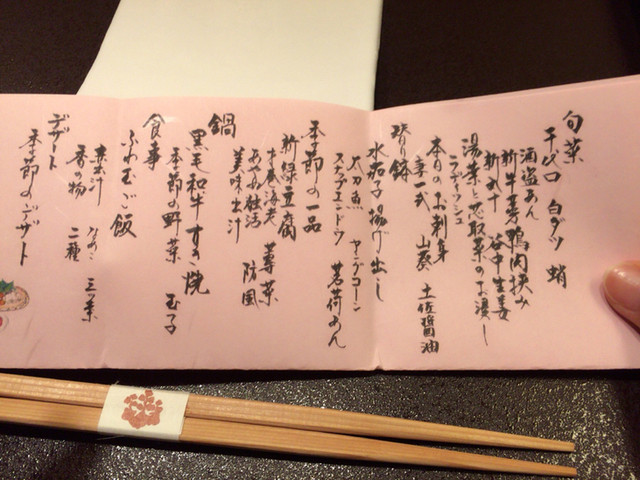 旬菜
千代口 白ダツ 蛸
酒盗あん
新牛蒡鴨肉挟み
新丸十 谷中生姜
湯葉と芯取菜のお浸し
ラディッシュ
本日のお刺身
妻一式 山葵 土佐醤油
替り鉢
水茄子揚げ出し
太刀魚 ヤングコーン
スナップエンドウ 茗荷あん
季節の一品
新緑豆腐 蓴菜
才巻海老 防風
あやめ独活
美味出汁
鍋
黒毛和牛すき焼
季節の野菜 玉子
食事
ふわ玉ご飯
赤出汁 なめこ 三つ葉
香の物 二種
デザート
季節のデザート